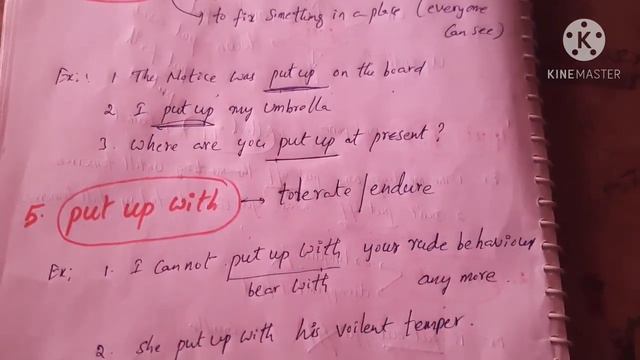 to fix something in a place (everyone
can see)
K
KINEMASTER
Ex: 1 The Notice was put up on the board
2 I put up my Umbrella
3. Where are you put up at present?
5. put up with → tolerate/endure
Ex; 1. I cannot put up with your rude behaviour
bear with any more.
2. she put up with his voilent temper.